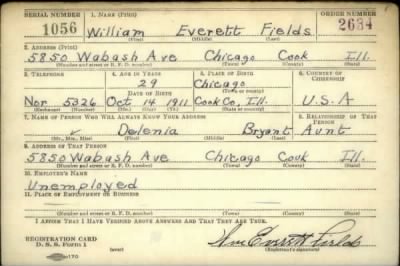 SERIAL NUMBER 1. NAME (Print) ORDER NUMBER
1056 William Everett Fields 2634
(First) (Middle) (Last)
2. ADDRESS (Print)
5850 Wabash Ave Chicago Cook Ill.
(Number and street or R. F. D. number) (Town) (County) (State)
3. TELEPHONE 4. AGE IN YEARS 5. PLACE OF BIRTH 6. COUNTRY OF CITIZENSHIP
29 Chicago
DATE OF BIRTH (Town or county)
Nor 5326 Oct 14 1911 Cook Co, Ill. U.S.A
(Exchange) (Number) (Mo.) (Day) (Yr.) (State or country)
7. NAME OF PERSON WHO WILL ALWAYS KNOW YOUR ADDRESS 8. RELATIONSHIP OF THAT PERSON
Delenia Bryant Aunt
(Mr., Mrs., Miss) (First) (Middle) (Last)
9. ADDRESS OF THAT PERSON
5850 Wabash Ave Chicago Cook Ill.
(Number and street or R. F. D. number) (Town) (County) (State)
10. EMPLOYER'S NAME
Unemployed
11. PLACE OF EMPLOYMENT OR BUSINESS
(Number and street or R. F. D. number) (Town) (County) (State)
I AFFIRM THAT I HAVE VERIFIED ABOVE ANSWERS AND THAT THEY ARE TRUE.
REGISTRATION CARD
D. S. S. Form 1 (over) Wm Everett Fields
(Registrant's signature)